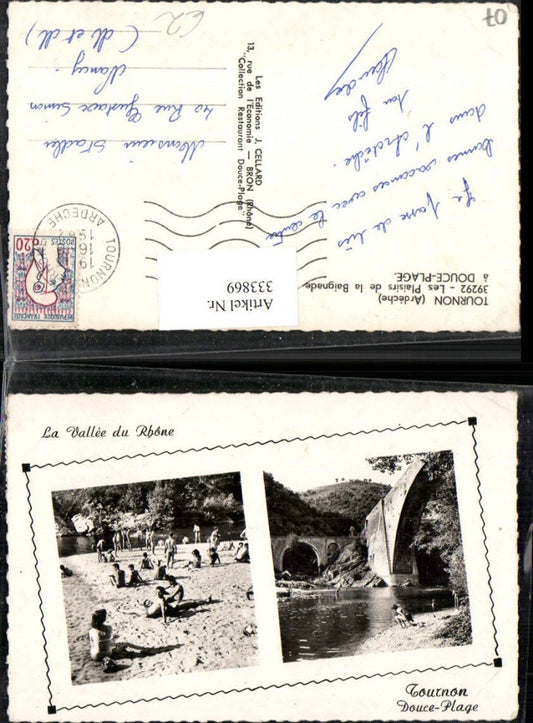 70
TOURNON (Ardèche)
39292 - Les Plaisirs de la Baignade
à DOUCE-PLAGE
Je passe de très
bonnes vacances avec le centre
dans l'Ardèche.
ton fils
Les Editions J. CELLARD
13, rue de l'Economie — BRON (Rhône)
Collection Restaurant Douce-Plage
Monsieur
40 Rue Gustave Simon
Nancy.
(M et M)
TOURNON
ARDECHE
19
16
0,20
POSTES
REPUBLIQUE FRANÇAISE
Artikel Nr.
333869
La Vallée du Rhône
Tournon
Douce-Plage